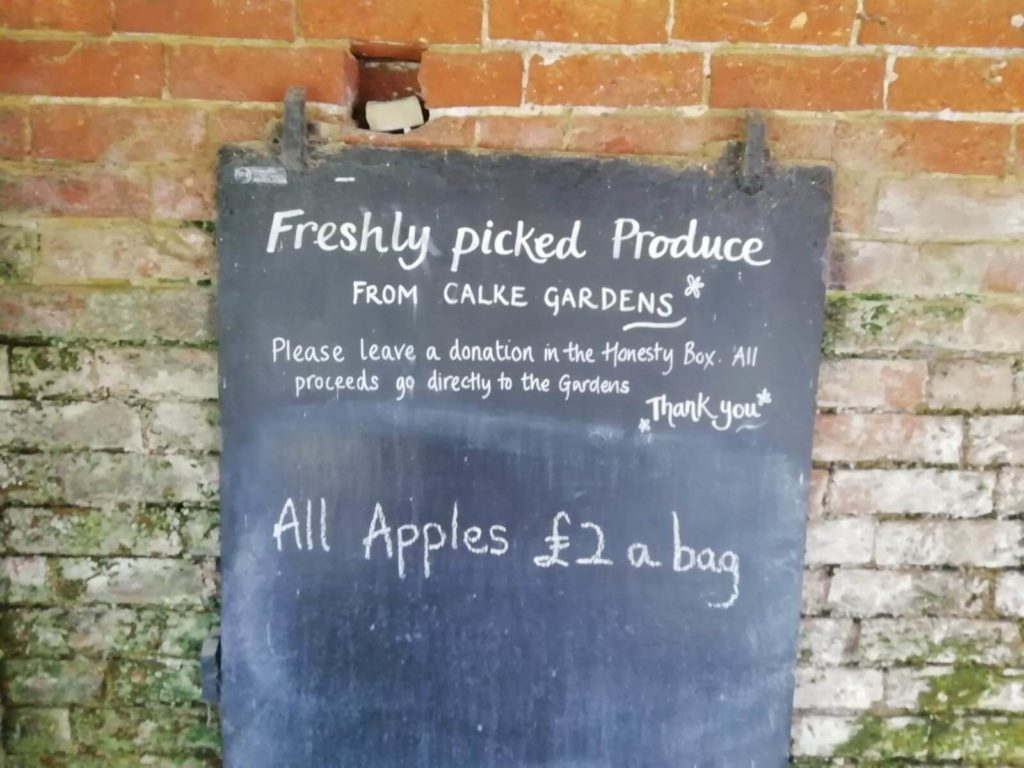 Freshly picked Produce
FROM CALKE GARDENS
Please leave a donation in the Honesty Box. All
proceeds go directly to the Gardens
Thank you
All Apples £2 a bag